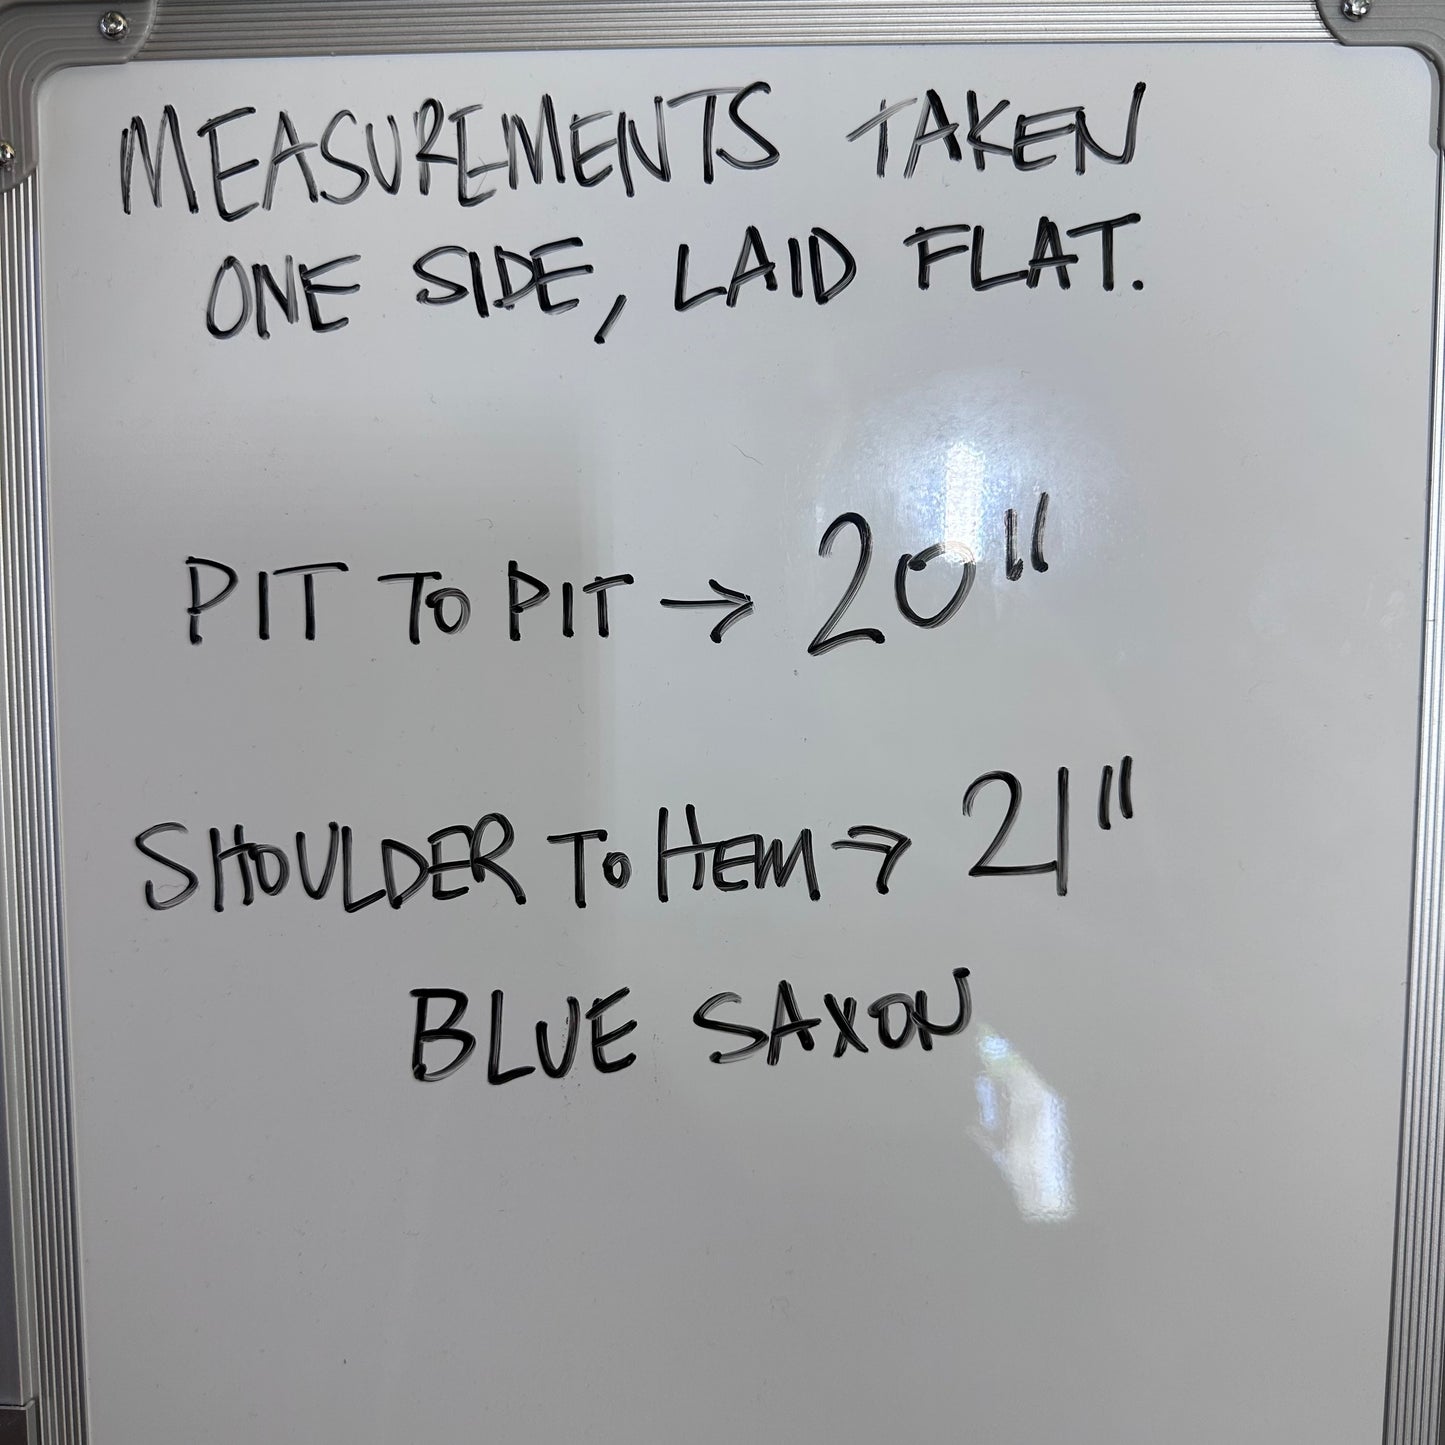 MEASUREMENTS TAKEN
ONE SIDE, LAID FLAT.
PIT TO PIT → 20"
SHOULDER TO HEM → 21"
BLUE SAXON